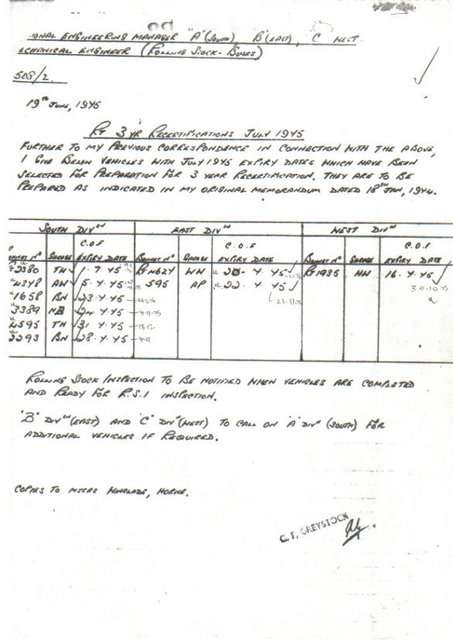 IONAL ENGINEERING MANAGER "A" (SOUTH), "B" (EAST), "C" WEST
ECHANICAL ENGINEER (ROLLING STOCK - BUSES)
508/2
19TH JUNE, 1945
RE 3 YR RECERTIFICATIONS JULY 1945
FURTHER TO MY PREVIOUS CORRESPONDENCE IN CONNECTION WITH THE ABOVE,
I GIVE BELOW VEHICLES WITH JULY 1945 EXPIRY DATES WHICH HAVE BEEN
SELECTED FOR PREPARATION FOR 3 YEAR RECERTIFICATION. THEY ARE TO BE
PREPARED AS INDICATED IN MY ORIGINAL MEMORANDUM DATED 18TH JAN, 1944.
SOUTH DIVN EAST DIVN WEST DIVN
C.O.F C.O.F C.O.F
BONNET NO GARAGE EXPIRY DATE BONNET NO GARAGE EXPIRY DATE BONNET NO GARAGE EXPIRY DATE
2380 TH 1.7.45 WN 20.7.45 1935 HN 16.7.45
AW 5.7.45 595 AP 22.7.45 30.10.45
1658 BN 23.7.45
3389 NB 24.7.45
4595 TH 31.7.45
2293 BN 28.7.45
ROLLING STOCK INSPECTION TO BE NOTIFIED WHEN VEHICLES ARE COMPLETED
AND READY FOR R.S.I INSPECTION.
"B" DIVN (EAST) AND "C" DIVN (WEST) TO CALL ON "A" DIVN (SOUTH) FOR
ADDITIONAL VEHICLES IF REQUIRED.
COPIES TO MSSRS HORNE.
C. F. GREYSTOCK